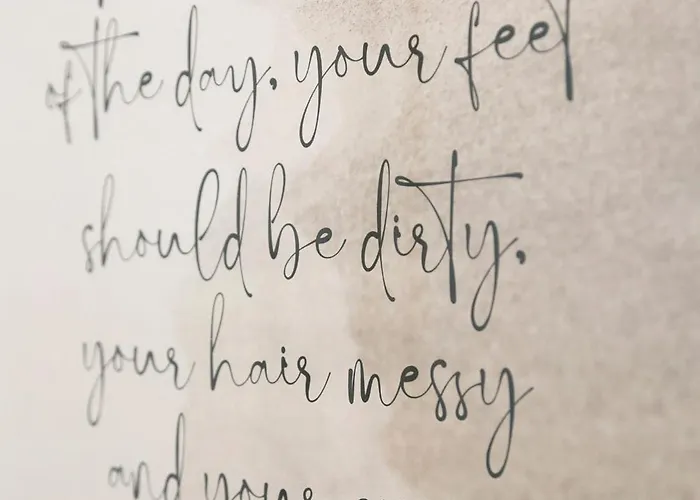 of the day, your feet
should be dirty,
your hair messy
and your